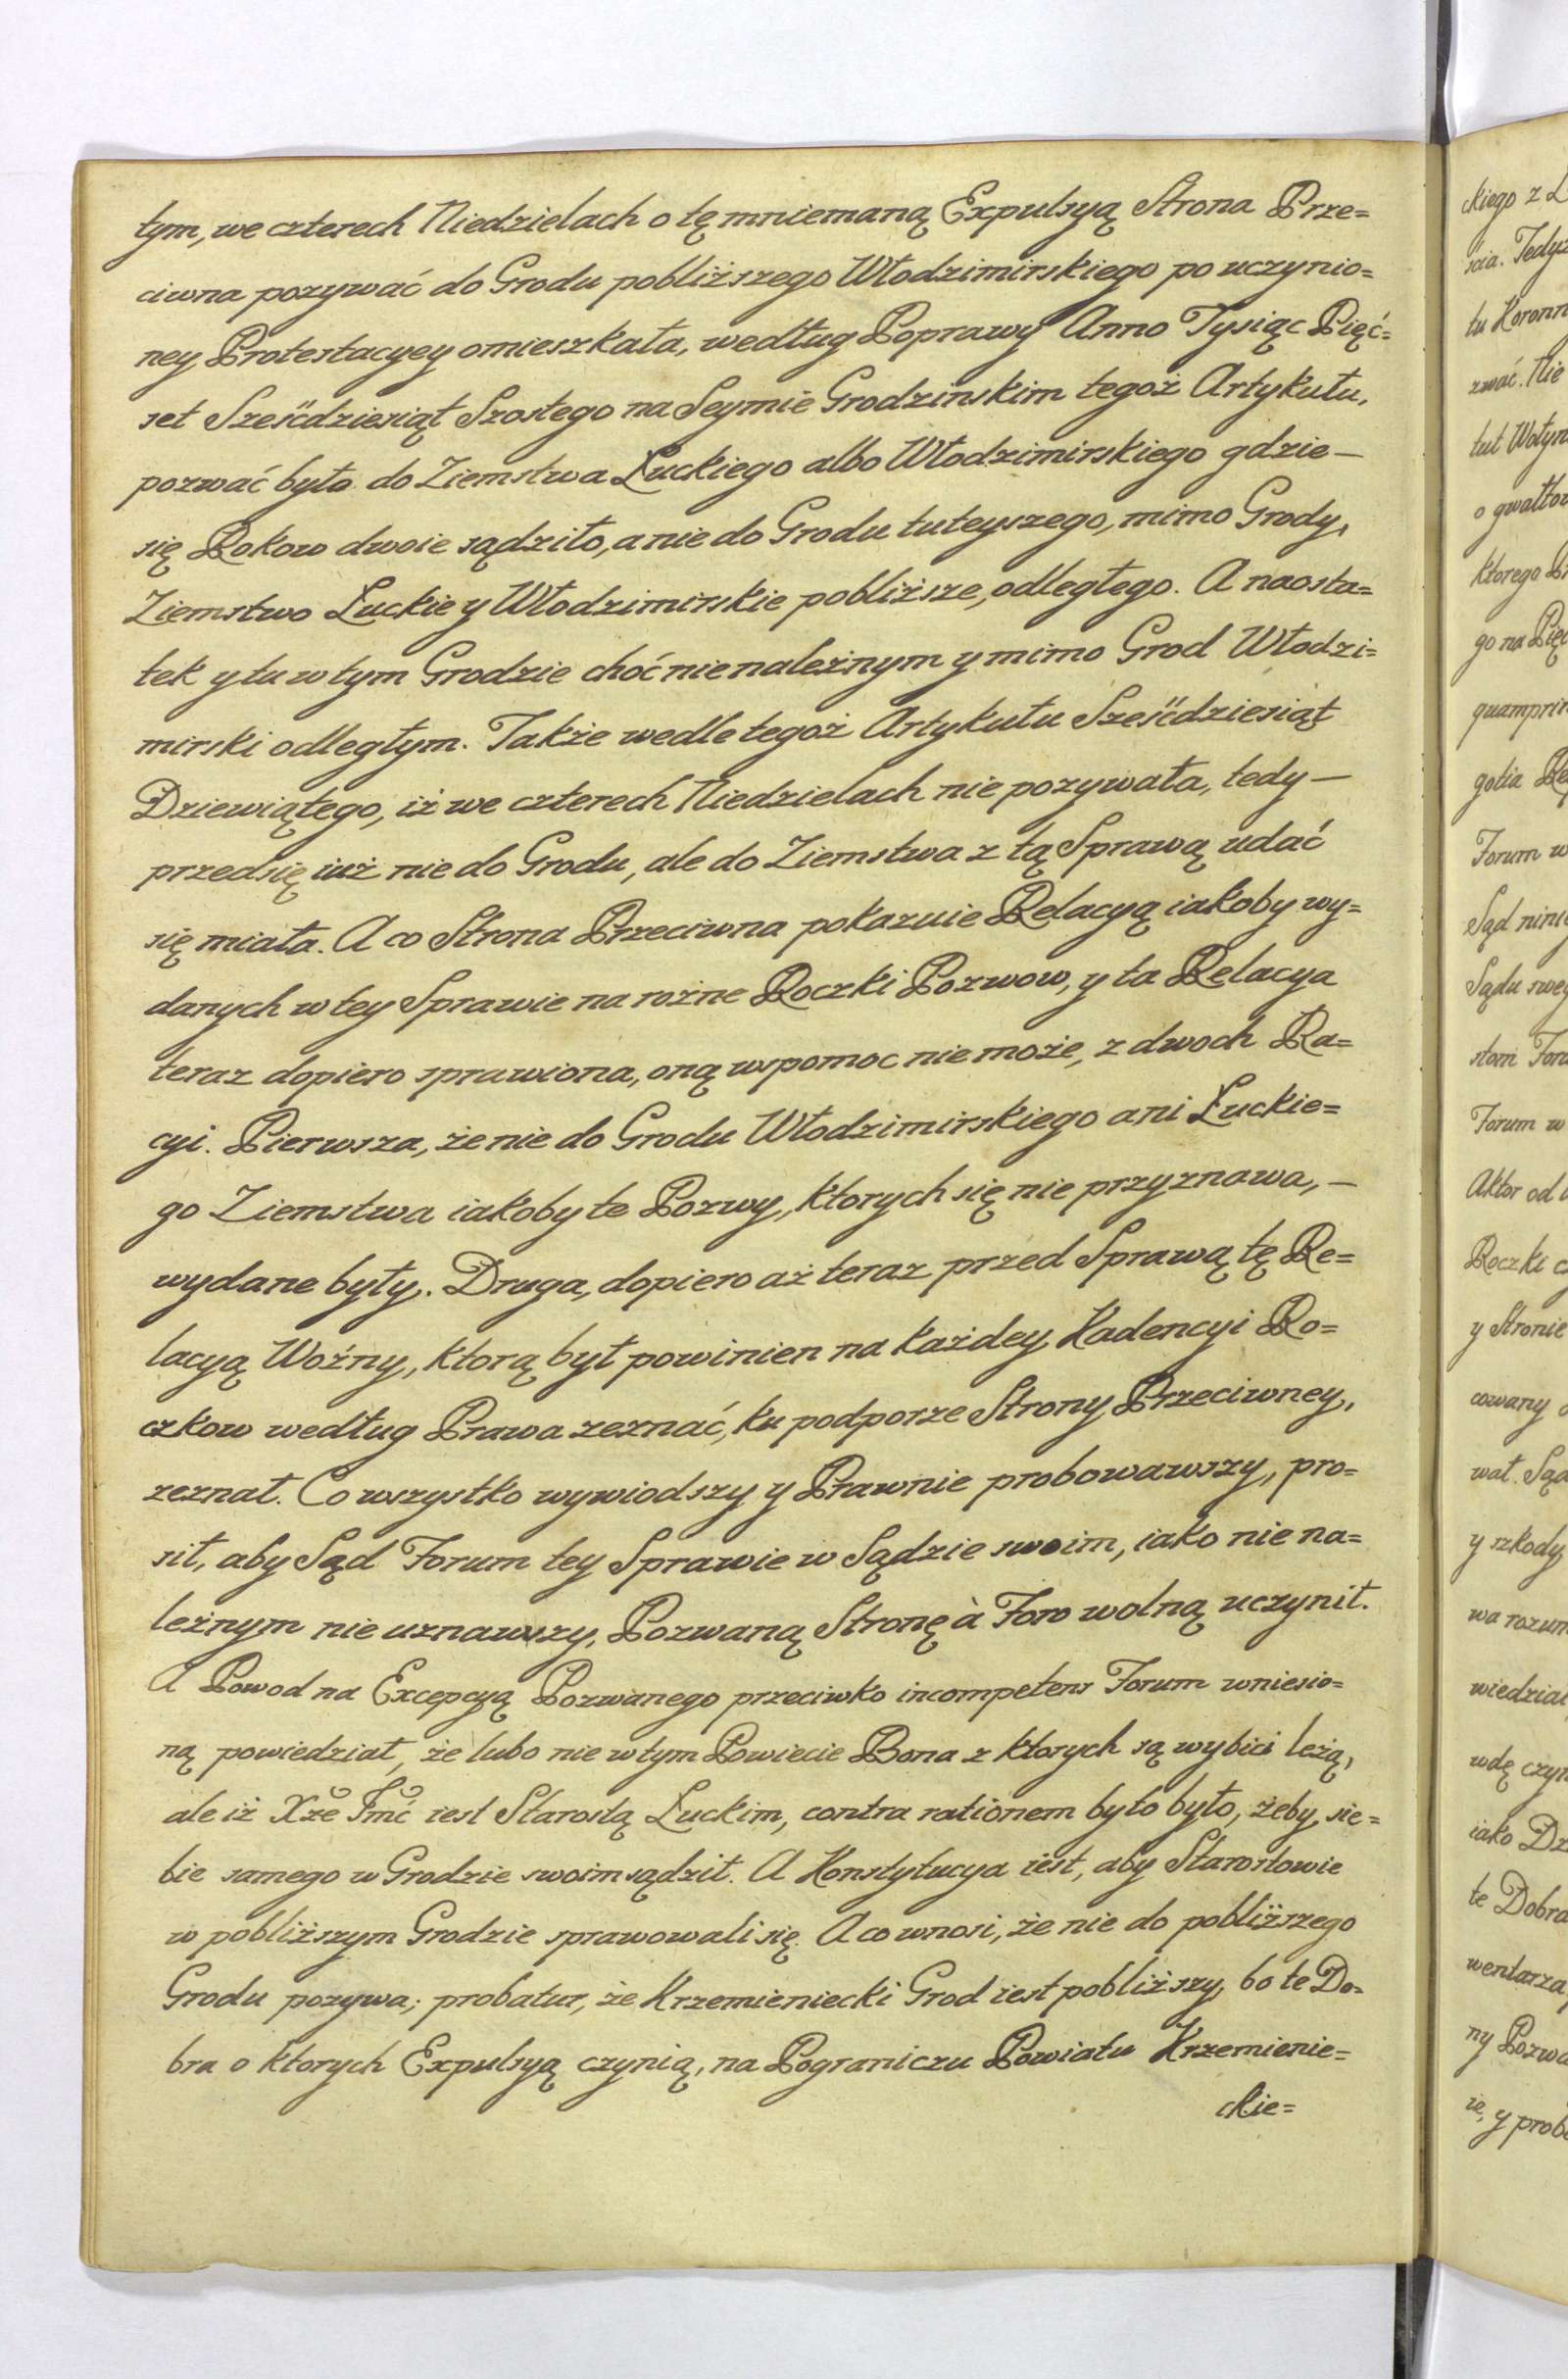 tym, we czterech Niedzielach o tę mniemaną Expulsyą Strona Prze=
ciwna pozywać do Grodu pobliższego Włodzimirskiego po uczynio=
ney Protestacyey omieszkała, według Poprawy Anno Tysiąc Pięć=
set Sześćdziesiąt Szostego na Seymie Grodzinskim tegoż Artykułu,
pozwać było do Ziemstwa Łuckiego albo Włodzimirskiego gdzie—
się Rokow dwoie sądziło, a nie do Grodu tuteyszego, mimo Grody,
Ziemstwo Łuckie y Włodzimirskie pobliższe, odległego. A naosta=
tek y tu w tym Grodzie choć nie należnym y mimo Grod Włodzi=
mirski odległym. Także wedle tegoż Artykułu Sześćdziesiąt
Dziewiątego, iż we czterech Niedzielach nie pozywała, tedy—
przedsię iuż nie do Grodu, ale do Ziemstwa z tą Sprawą udać
się miała. A co Strona Przeciwna pokazuie Relacyą iakoby wy=
danych w tey Sprawie na rożne Roczki Pozwow, y ta Relacya
teraz dopiero sprawiona, oną wspomoc nie może, z dwoch Ra=
cyi. Pierwsza, że nie do Grodu Włodzimirskiego ani Łuckie=
go Ziemstwa iakoby te Pozwy, ktorych się nie przyznawa,—
wydane były. Druga, dopiero aż teraz przed Sprawą tę Re=
lacyą Woźny, ktorą był powinien na każdey Kadencyi Ro=
czkow według Prawa zeznać, ku podporze Strony Przeciwney,
zeznał. Co wszystko wywiodszy y Prawnie probowawszy, pro=
sił, aby Sąd Forum tey Sprawie w Sądzie swoim, iako nie na=
leżnym nie uznawszy, Pozwaną Stronę à Foro wolną uczynił.
A Powod na Excepcyą Pozwanego przeciwko incompetens Forum wniesio=
ną powiedział, że lubo nie w tym Powiecie Dona z ktorych są wybici leżą,
ale iż Xże Jmć iest Starostą Łuckim, contra rationem było było, żeby sie=
bie samego w Grodzie swoim sądził. A Konstytucya iest, aby Starostowie
w pobliższym Grodzie sprawowali się. A co wnosi, że nie do pobliższego
Grodu pozywa; probatur, że Krzemieniecki Grod iest pobliższy, bo te Do=
bra o ktorych Expulsyą czynią, na Pograniczu Powiatu Krzemienie=
ckie=
ckiego z
ścia.
tu
zwać. Nie
tut
o
ktorego
go na
Forum w
Sąd
Sądu
Forum w
Aktor od
Roczki
y Stronie
cowany
wał.
y szkody
wa
iako
te Dobra
ny